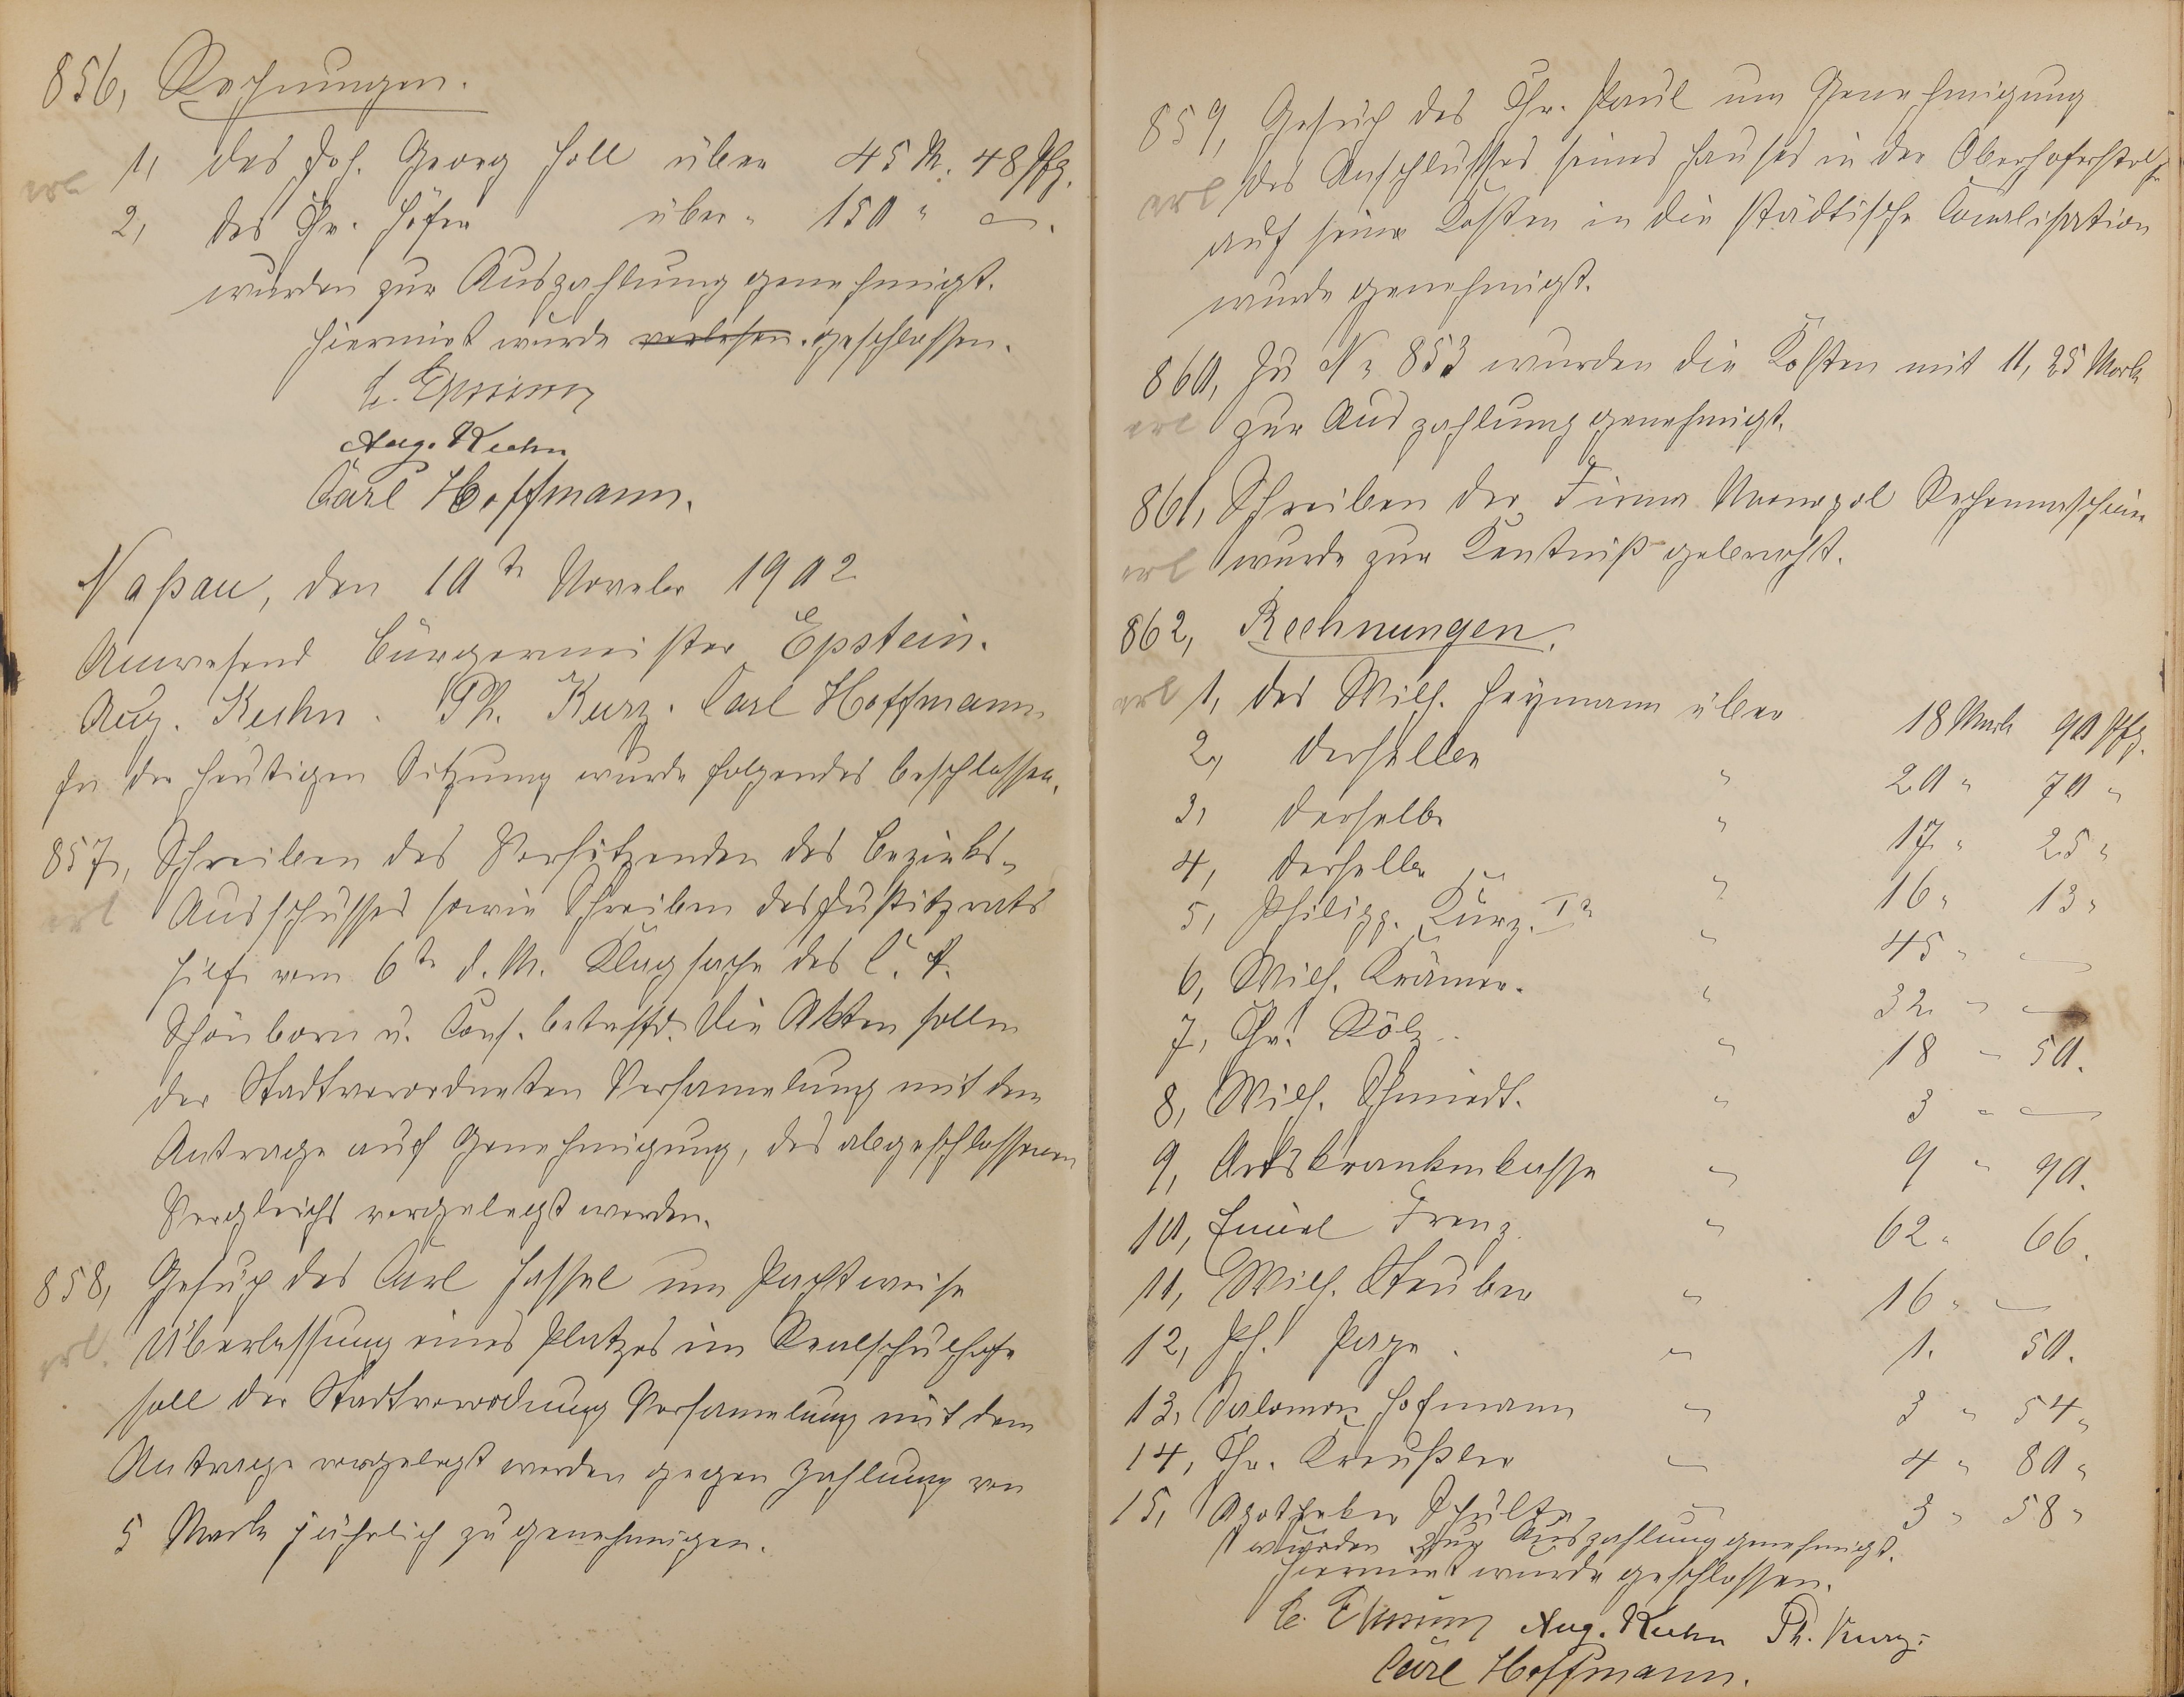 856, Rechnungen.
erl
1, des Joh. Georg Holl über 45 M. 48 Pfg.
2, des Chr. Höfer über " 150 " — .
wurden zur Auszahlung genehmigt.
Hiermit wurde verlesen. geschlossen.
Aug. Kuhn
Carl Hoffmann.
Naßau, den 10te Novbr 1902
Anwesend Bürgermeister Epstein.
Aug. Kuhn. Ph. Kurz. Carl Hoffmann
In der heutigen Sitzung wurde folgendes beschlossen.
857, Schreiben des Vorsitzenden des Bezirks-
erl
Ausschusses sowie Schreiben des Justizrats
Hilf vom 6te d. M. Klagsache des C. A.
Schönborn u. Cons. betreffd. Die Akten sollen
der Stadtverordneten Versamelung mit dem
Antrage auf Genehmigung, des abgeschlossenen
Vergleichs vorgelegt werden.
858, Gesuch des Carl Hassel um Pachtweise
erl.
Überlassung eines Platzes im Realschulhofe
soll der Stadtverordnung Versamelung mit dem
Antrage vorgelegt werden gegen Zahlung von
5 Mark jährlich zu genehmigen.
859, Gesuch des Chr. Paul um Genehmigung
erl
des Anschlusses seines Hauses in der Oberhoferstraße
auf seine Kosten in die städtische Canalisation
wurde genehmigt.
860, Zu No 853 wurden die Kosten mit 11,25 Mark
erl
zur Auszahlung genehmigt.
861, Schreiben der Firma Monopol Rechenmaschine
erl
wurde zur Kentniß gebracht.
862, Rechnungen.
erl
1, des Wilh. Heymann über 18 Mark 90 Pfg.
2, derselbe " 20 " 70 "
3, derselbe " 17 " 25 "
4, derselbe " 16 " 13 "
5, Philipp. Kurz. Ir " 45 " —
6, Wilh. Krämer. " 32 " —
7, Chr. Kölz.. " 18 " 50.
8, Wilh. Schmidt. " 3 " —
9, Ortskrankenkasse " 9 " 90.
10, Emiel Franz " 62 " 66.
11, Wilh. Steuber " 16 " —
12, Ph. Page . " 1. 50.
13, Salomon Hofmann " 3 " 54 "
14, Chr. Kreußler " 4 " 80 "
15, Apotheker Schulte " 3 " 58 "
wurden zur Auszahlung genehmigt.
Hiermit wurde geschlossen.
Aug. Kuhn Ph. Kurz.
Carl Hoffmann.